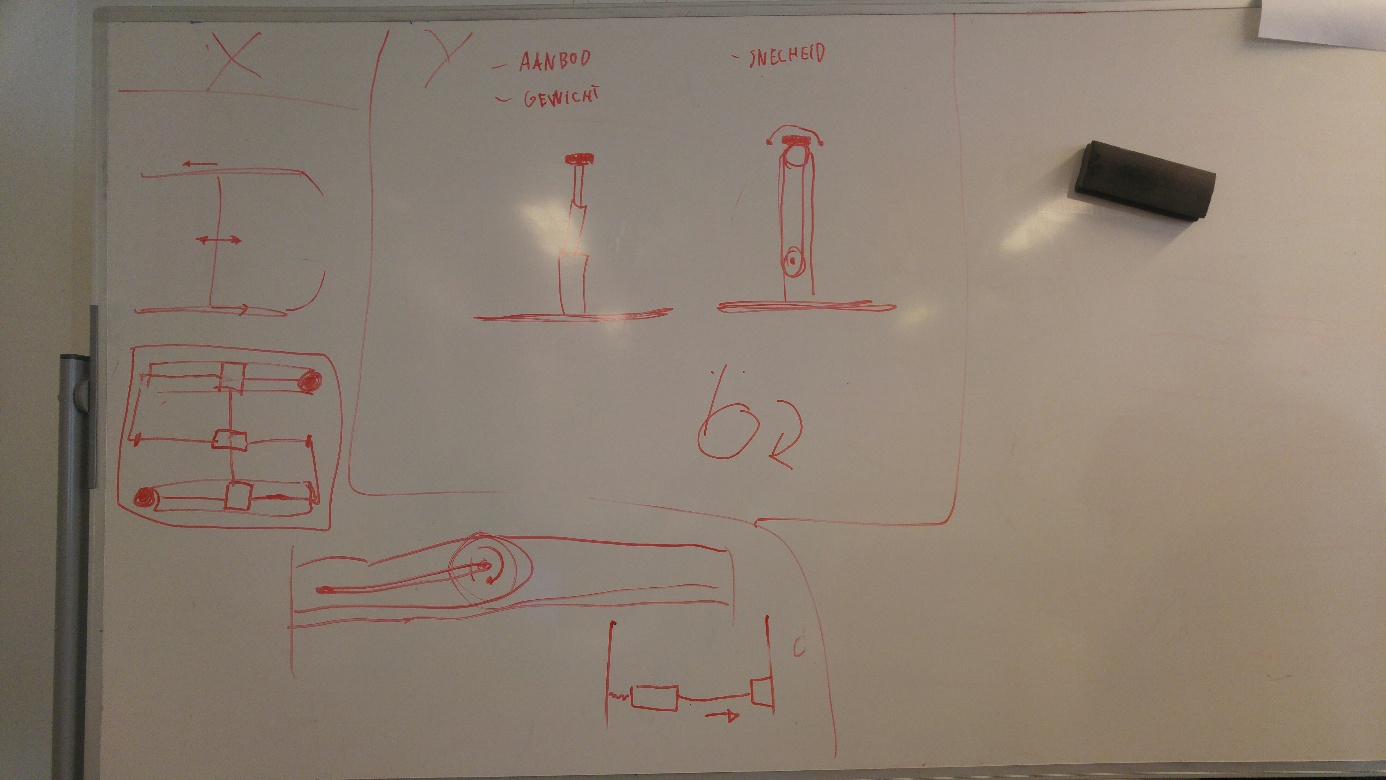 X
Y
- AANBOD
- GEWICHT
- SNELHEID